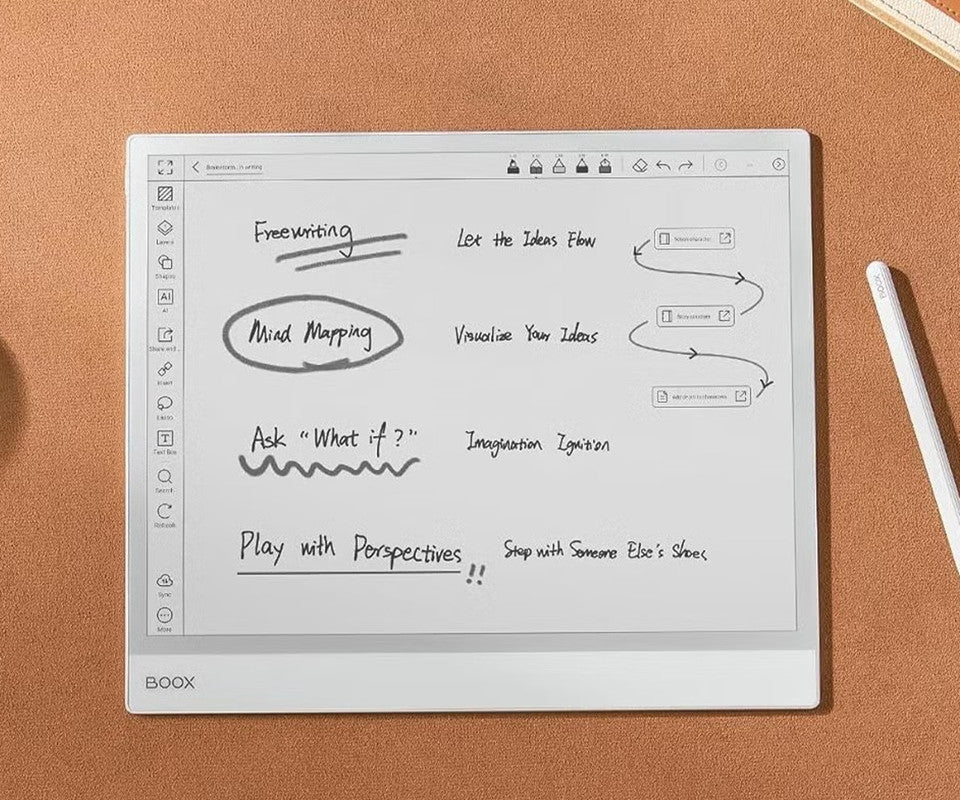 Brainstorm. in writing
Templates
Layers
Shapes
AI
AI
Insert
Lasso
T
Text Box
Search
Refresh
Sync
More
Freewriting Let the Ideas Flow
Mind Mapping Visualize Your Ideas
Ask “What if?” Imagination Ignition
Play with Perspectives!! Step with Someone Else's Shoes
BOOX
BOOX